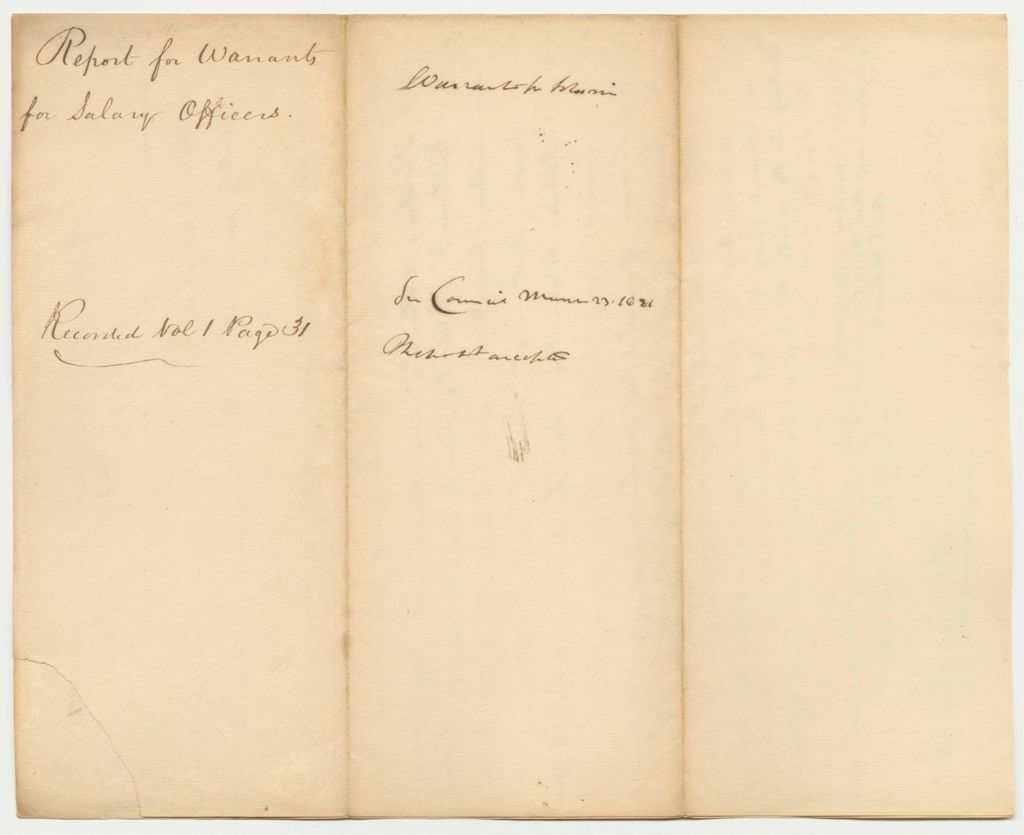 Report for Warrants
for Salary Officers.
Recorded Vol 1 Page 31
Warrants for
In Council 23. 1821
Report accepted